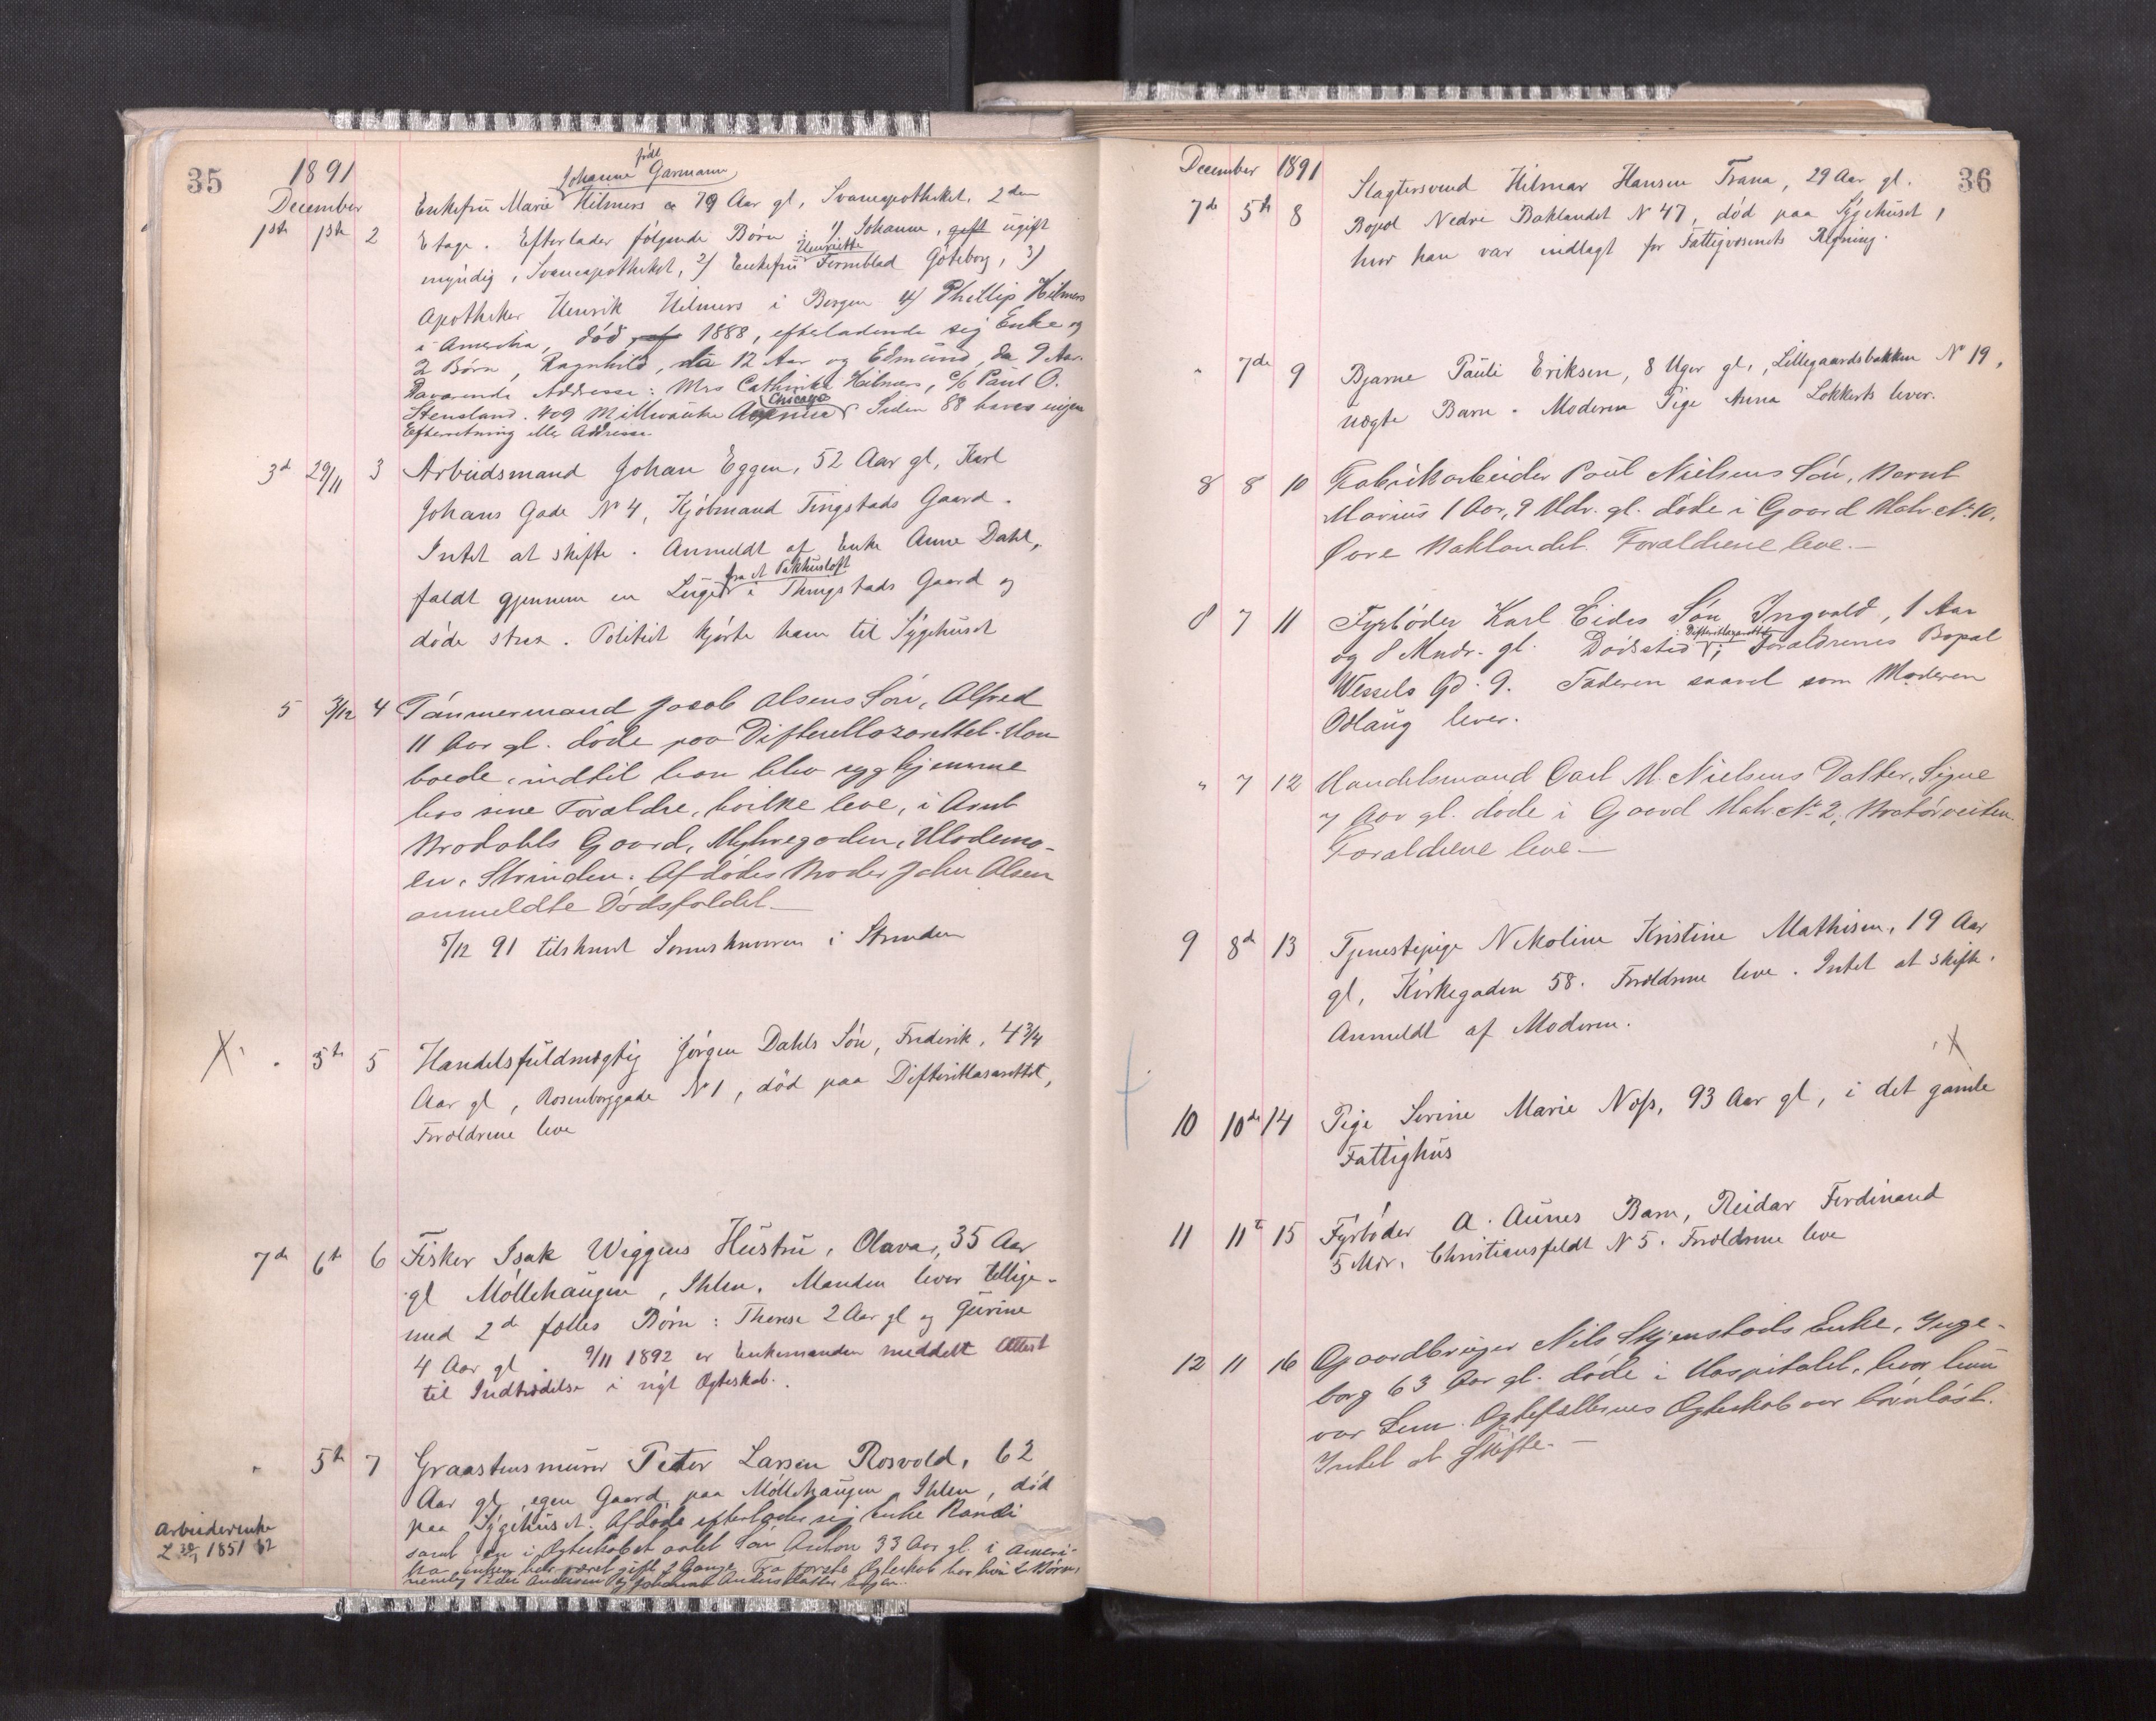 35
1891
December
født
Johanne Garmann
1ste 1ste 2 Enkefru Marie Hilmers ca 79 Aar gl, Svaneapotheket, 2den
Etage. Efterlader følgende Børn: 1) Johanne, gift ugift
myndig, Svaneapotheket, 2/ Enkefru Henriette Fermblad Göteborg, 3)
Apotheker Henrik Hilmers i Bergen 4) Phillip Hilmers
i Amerika, død 1888, efterladende sig Enke og
2 Børn, Ragnhild, da 12 Aar og Edmund, da 9 Aar.
Daværende Addresse: Mrs Cathinka Hilmers, c/o Paul O.
Stensland. 409 Millwaukee Avenue Chicago. Siden 88 haves ingen
Efterretning eller Addresse.
3d 29/11 3 Arbeidsmand Johan Eggen, 52 Aar gl, Karl
Johans Gade N 4, Kjøbmand Tingstads Gaard.
Intet at skifte. Anmeldt af Enke Anne Dahl,
faldt gjennem en Luge fra et Pakhusloft i Thingstads Gaard og
døde strax. Politiet kjørte ham til Sygehuset
5 3/12 4 Tømmermand Jacob Olsens Søn, Alfred
11 Aar gl. døde paa Difteritlazarettet. Han
boede, indtil han blev syg hjemme
hos sine Forældre, hvilke leve, i Arnt
Brodahls Gaard, Myhregaden, Ulademo-
en, Strinden. Afdødes Broder John Olsen
anmeldte Dødsfaldet.
5/12 91 tilskrevet Sorenskriveren i Strinden
X " 5te 5 Handelsfuldmægtig Jørgen Dahls Søn, Frederik, 4 3/4
Aar gl, Rosenborggade N 1, død paa Difteritlasarettet,
Forældrene leve
7de 6te 6 Fisker Isak Wiggens Hustru, Olava, 35 Aar
gl Møllehaugen, Ihlen. Manden lever tillige-
med 2de fælles Børn: Therese 2 Aar gl og Gurine
4 Aar gl. 9/11 1892 er Enkemanden meddelt Attest
til Indtrædelse i nyt Ægteskab.
" 5te 7 Graastensmurer Peter Larsen Rosvold, 62
Aar gl, egen Gaard paa Møllehaugen Ihlen, død
paa Sygehuset. Afdøde efterlader sig Enke Randi
samt en i Ægteskabet avlet Søn Anton 33 Aar gl. i Ameri-
ka. Enken har været gift 2 Gange. Fra første Ægteskab har hun 2 Børn,
nemlig Peder Andersen og Andersdatter
Arbeiderenke
1851
36
December 1891
7de 5te 8 Slagtersvend Hilmar Hansen Trana, 29 Aar gl.
Bopæl Nedre Baklandet N 47, død paa Sygehuset,
hvor han var indlagt for Fattigvæsenets Regning.
" 7de 9 Bjarne Pauli Eriksen, 8 Uger gl., Lillegaardsbakken N 19,
uægte Barn. Moderen Pige Anna Lokkerts lever.
8 8 10 Fabrikarbeider Paul Nielsens Søn, Bernt
Marius 1 Aar, 9 Mdr. gl. døde i Gaard Matr. No 10,
Øvre Baklandet. Forældrene leve.
8 7 11 Fyrbøder Karl Eides Søn Ingvald, 1 Aar
og 8 Mndr. gl. Dødssted: Difteritlazarettet; Forældrenes Bopæl
Wessels Gd. 9. Faderen saavel som Moderen
Odlaug lever.
" 7 12 Handelsmand Carl M. Nielsens Datter, Signe
7 Aar gl. døde i Gaard Matr. No 2, Bratørveiten.
Forældrene leve
9 8de 13 Tjenestepige Nikoline Kristine Mathisen, 19 Aar
gl, Kirkegaden 58. Forældrene leve. Intet at skifte.
Anmeldt af Moderen.
X
10 10de 14 Pige Serine Marie Næss, 93 Aar gl, i det gamle
Fattighus
11 11te 15 Fyrbøder A. Aunes Barn, Reidar Ferdinand
5 Mdr. Christiansfeldt N 5. Forældrene leve
12 11 16 Gaardbruger Nils Skjenstads Enke, Inge-
borg 63 Aar gl. døde i Hospitalet, hvor hun
var Lem. Ægtefællernes Ægteskab var barnløst.
Intet at skifte.